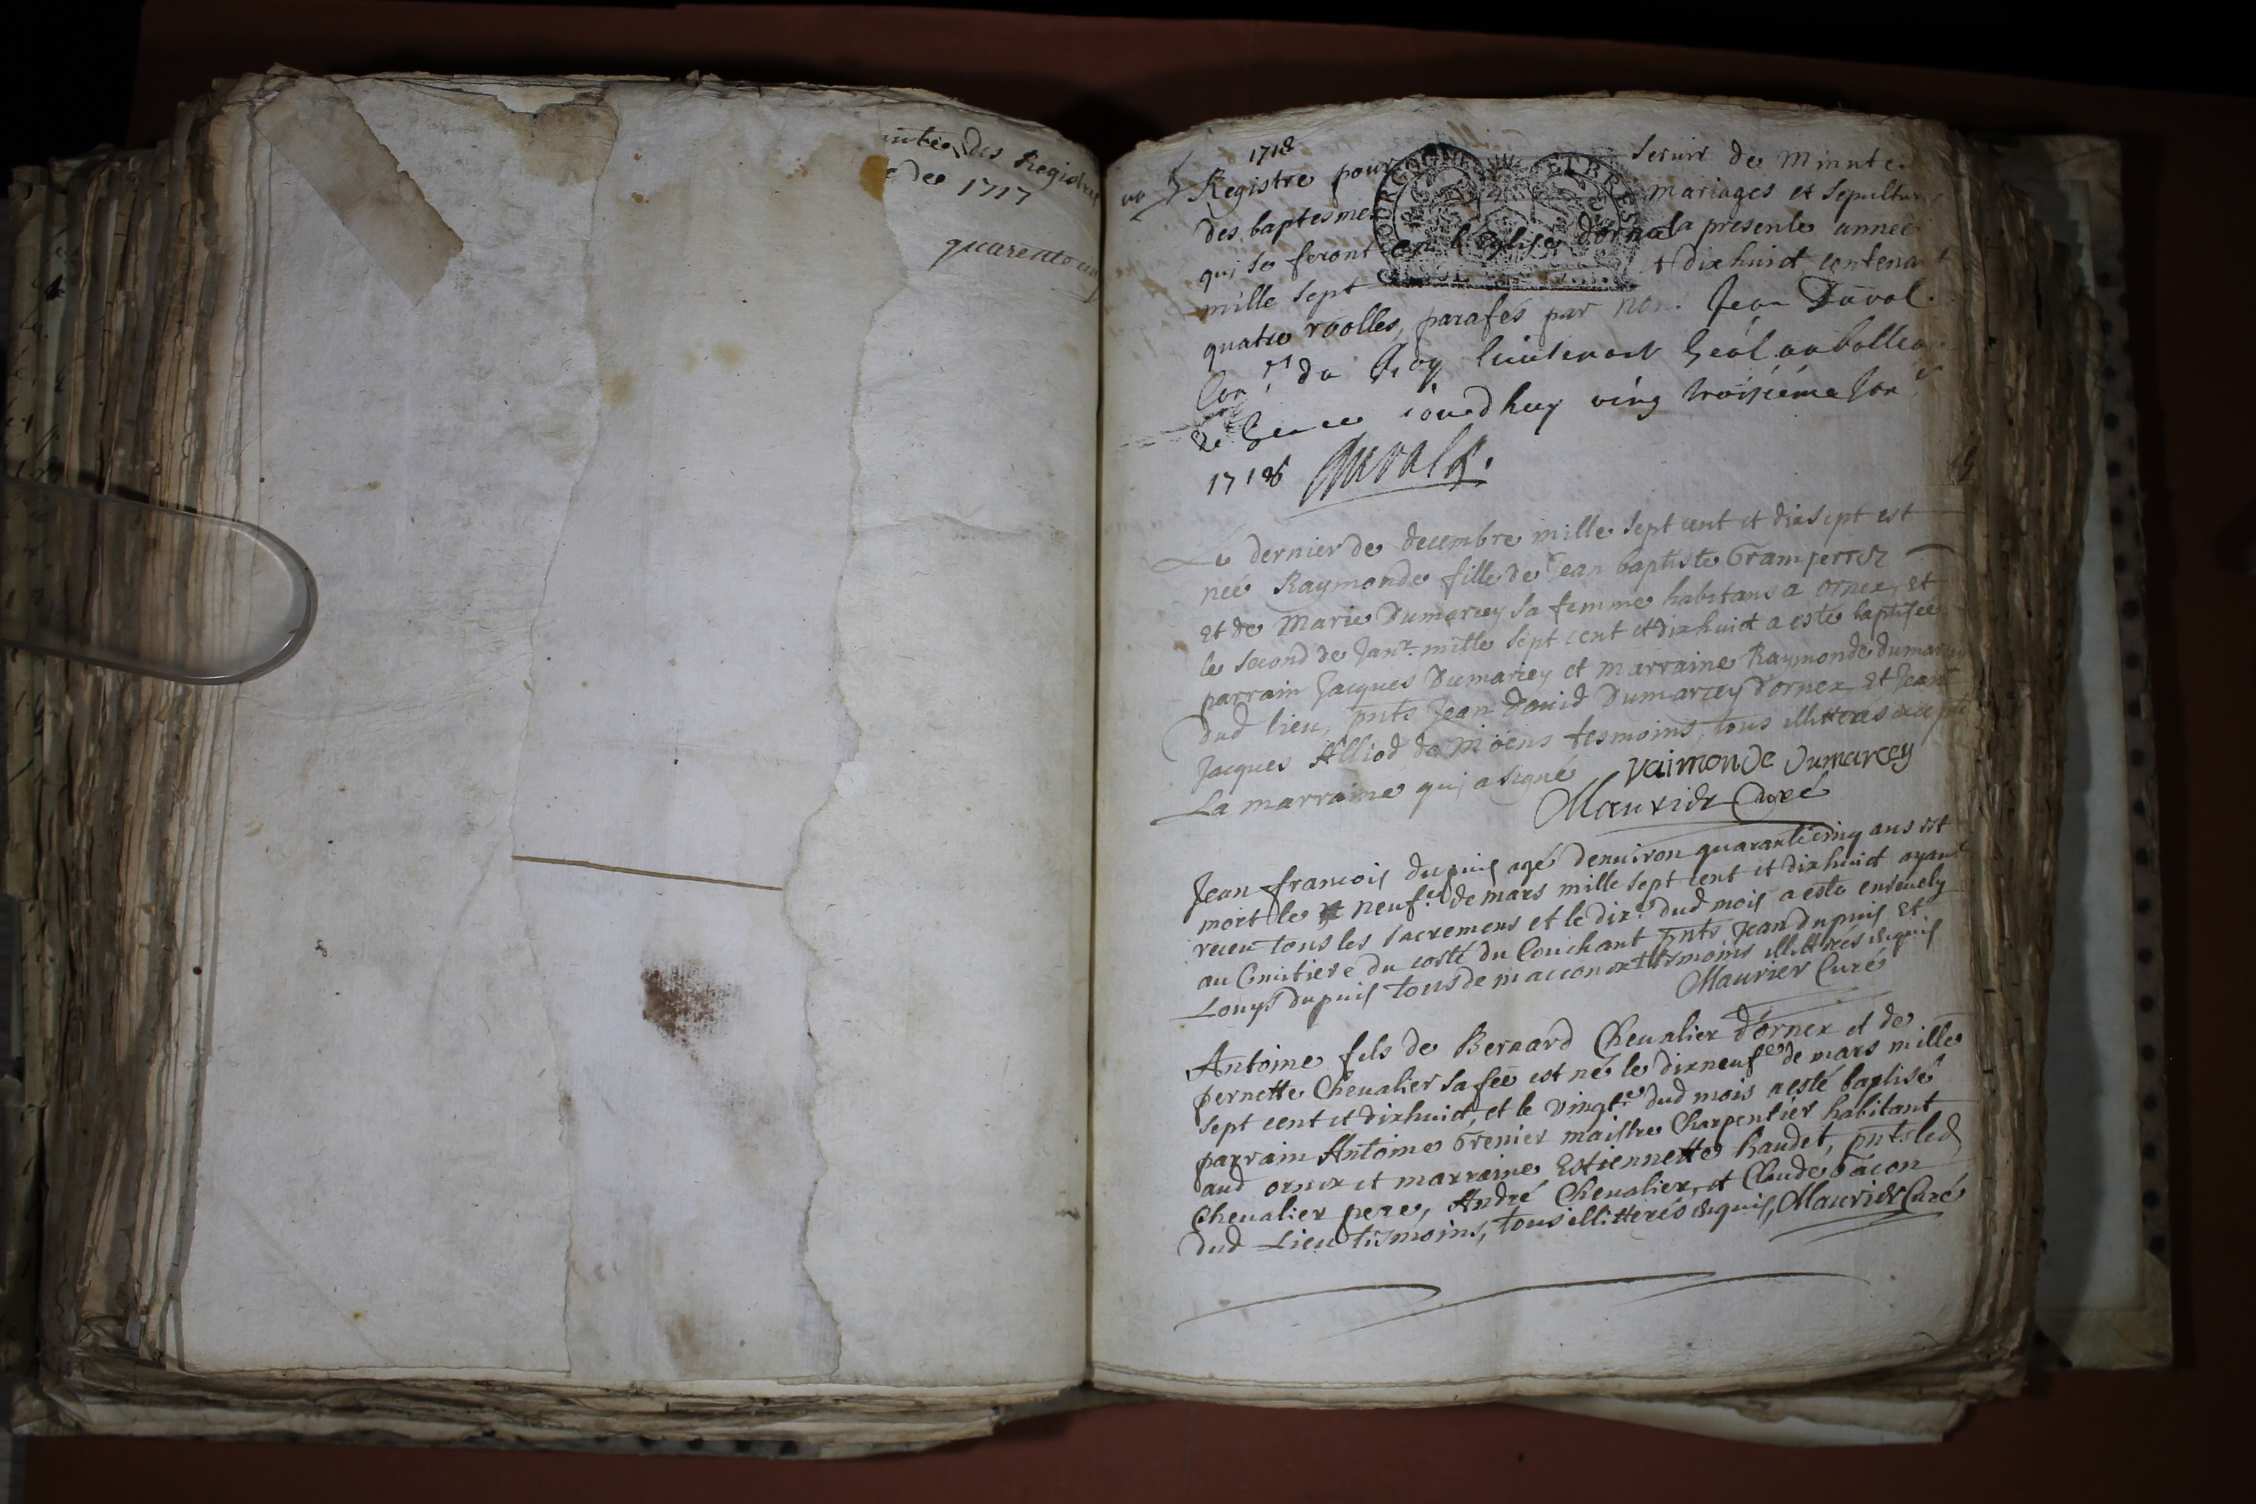 des Registres
de 1717
quarente
1718
Registre pour servir de minute
des baptesmes mariages et sepultures
qui se feront en l'Eglise d'ornex la presente année
mille sept et dixhuict contenant
quatre roolles, parafés par nous Jean Duval
du Roy lieutenant
jourdhuy ving troisiéme
1718 Duval
BOURGOGNE ET BRESSE
Le dernier de decembre mille sept cent et dixsept est
née Raymonde fille de Jean baptiste
et de Marie Dumarcey sa femme habitans a ornex, et
le second de Janr. mille sept cent et dixhuict a esté baptisée
parrain Jacques Dumarcey et marraine Raymonde dumarcey
dud lieu, pnts Jean David Dumarcey d'ornex, et Jean
Jacques Alliod de Moëns tesmoins, tous illitterés excepté
La marraine qui a signé vaimonde dumarcey
Maurier Curé
Jean francois dupuis agé denuiron quarantecinq ans est
mort le neufe de mars mille sept cent et dixhuict ayant
receu tous les sacremens et le dixe dud mois a esté enseuely
au Cimitiere du costé du Couchant pnts Jean dupuis et
Louys dupuis tous de maconex tesmoins illittérés enquis
Maurier Curé
Antoine fils de Bernard Cheualier d'ornex et de
pernette Cheualier sa fẽe est né le dixneufe de mars mille
sept cent et dixhuict, et le vingte dud mois a esté baptisé
parrain Antoine Grenier maistre Charpentier habitant
aud ornex et marraine Estiennette baudet, pnts led
Cheualier pere, André Cheualier, et Claude Bacon
dud Lieu tesmoins, tous illitterés enquis, Maurier Curé